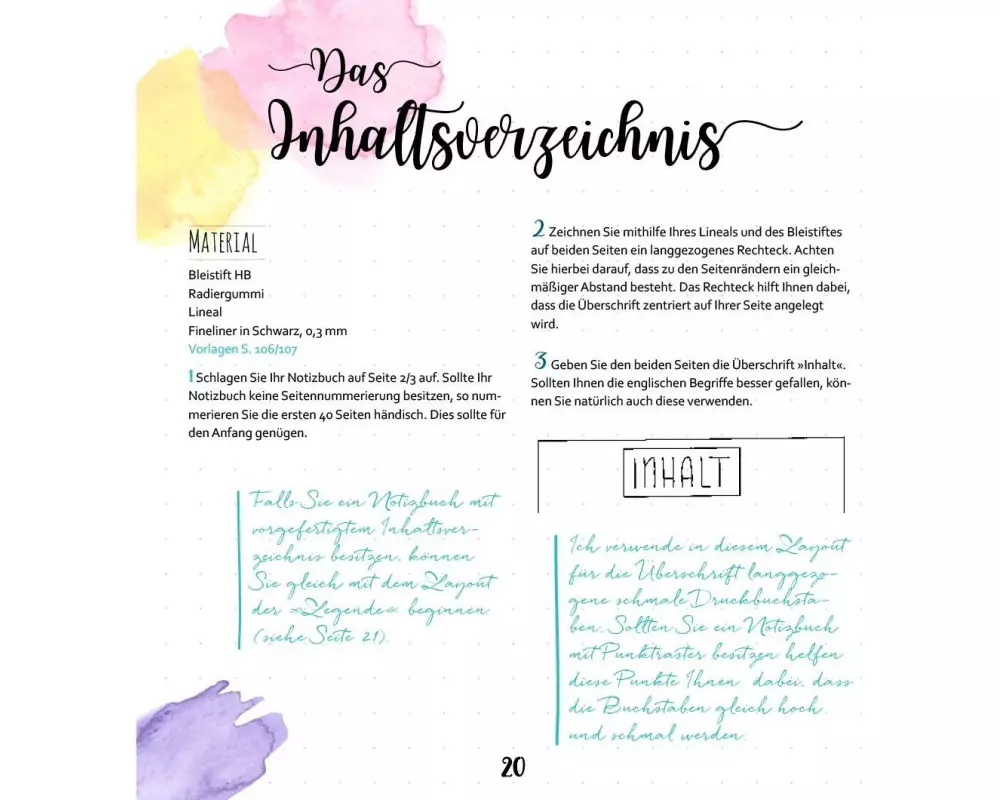 Das
Inhaltsverzeichnis
MATERIAL
Bleistift HB
Radiergummi
Lineal
Fineliner in Schwarz, 0,3 mm
Vorlagen S. 106/107
1 Schlagen Sie Ihr Notizbuch auf Seite 2/3 auf. Sollte Ihr
Notizbuch keine Seitennummerierung besitzen, so num-
merieren Sie die ersten 40 Seiten händisch. Dies sollte für
den Anfang genügen.
Falls Sie ein Notizbuch mit
vorgefertigtem Inhaltsver-
zeichnis besitzen, können
Sie gleich mit dem Layout
der »Legende« beginnen
(siehe Seite 21).
2 Zeichnen Sie mithilfe Ihres Lineals und des Bleistiftes
auf beiden Seiten ein langgezogenes Rechteck. Achten
Sie hierbei darauf, dass zu den Seitenrändern ein gleich-
mäßiger Abstand besteht. Das Rechteck hilft Ihnen dabei,
dass die Überschrift zentriert auf Ihrer Seite angelegt
wird.
3 Geben Sie den beiden Seiten die Überschrift »Inhalt«.
Sollten Ihnen die englischen Begriffe besser gefallen, kön-
nen Sie natürlich auch diese verwenden.
INHALT
Ich verwende in diesem Layout
für die Überschrift langgezo-
gene schmale Druckbuchsta-
ben. Sollten Sie ein Notizbuch
mit Punktraster besitzen helfen
diese Punkte Ihnen dabei, dass
die Buchstaben gleich hoch
und schmal werden.
20